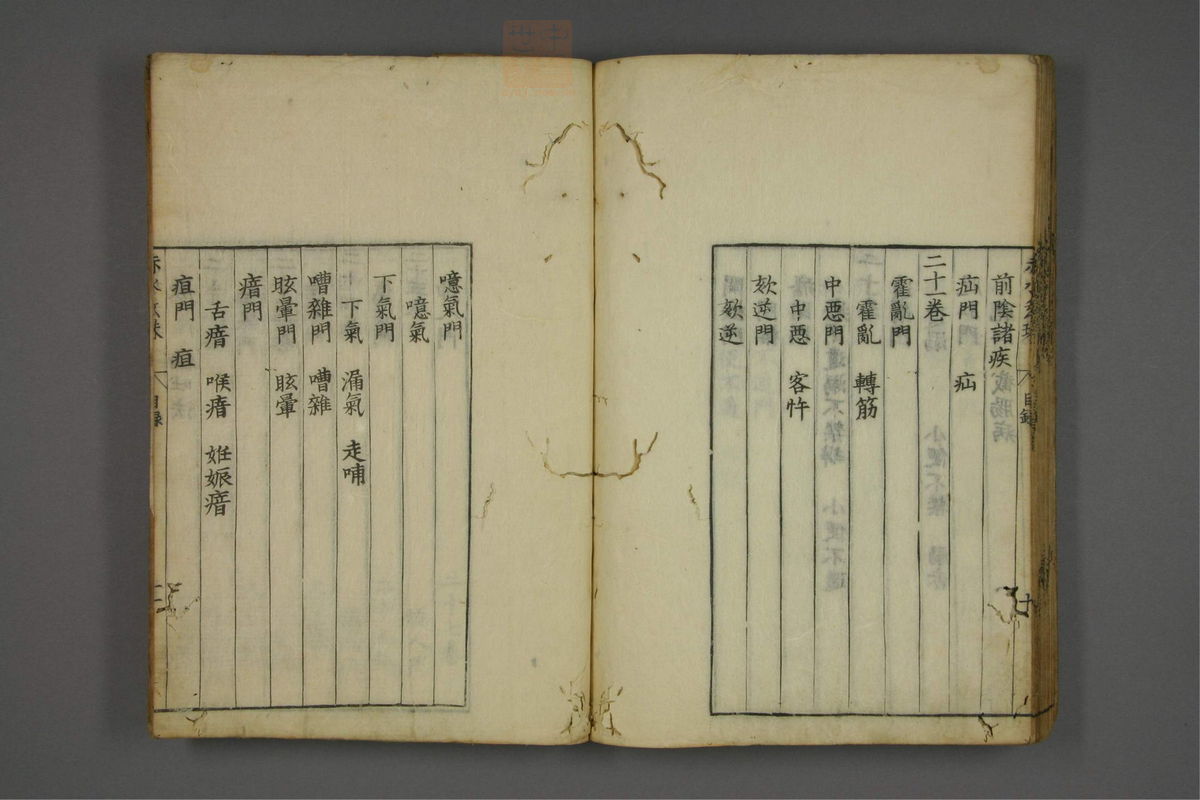 前陰諸疾
疝門　疝
二十一卷
霍亂門
霍亂　轉筋
中惡門
中惡　客忤
欬逆門
欬逆
噫氣門
噫氣
下氣門
下氣　漏氣　走哺
嘈雜門　嘈雜
眩暈門　眩暈
瘖門
舌瘖　喉瘖　姙娠瘖
疽門　疽
目錄